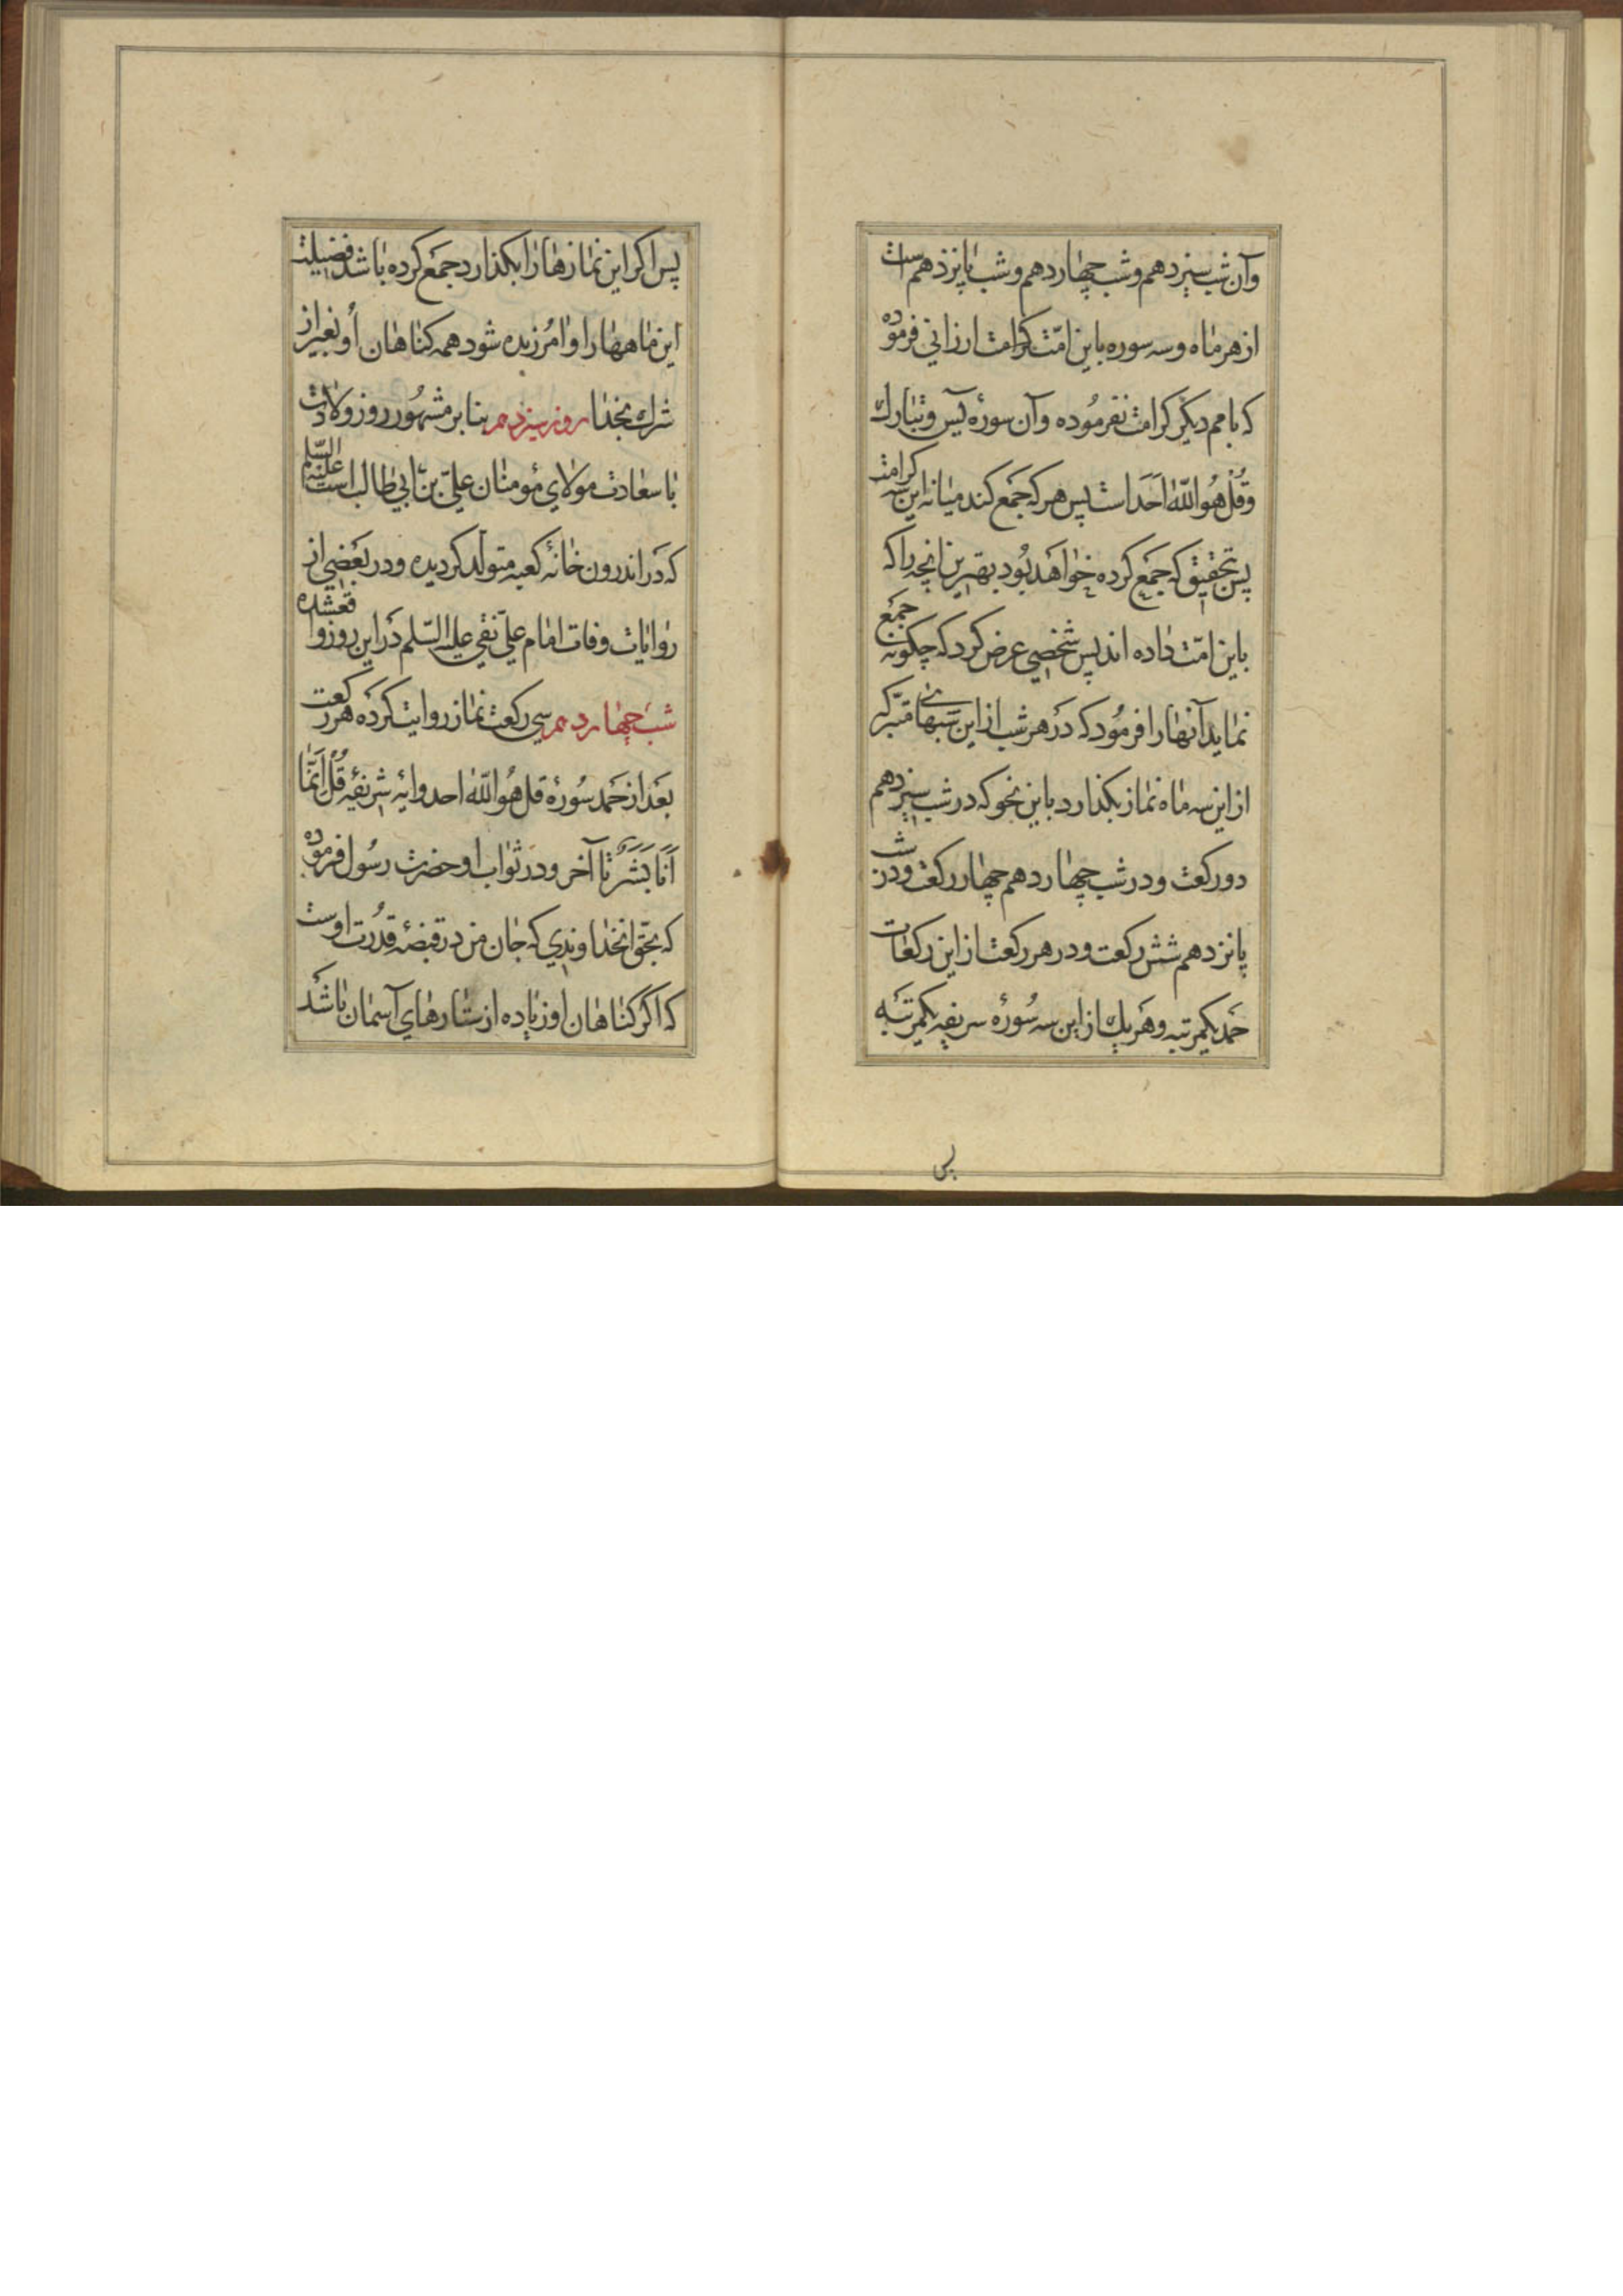 وآن شب سیزدهم وشب چهاردهم وشب پانزدهم است
از هر ماه وسه سوره باین امّت کرامت ارزانی فرموده
که بامم دیکر کرامت نفرموده وآن سورهٔ یس وتبارك
وقُلْ هُوَ اللّهُ اَحَدَ است پس هر که جمع کند میانه این سه کرامت
پس بتحقیق که جمع کرده خواهد بود بهترین انچه را که
باین امّت داده اند پس شخصی عرض کرد که چکونه جمع
نماید آنها را فرمود که در هر شب از این شبهای متبرکه
از این سه ماه نماز بکذارد باین نحو که در شب سیزدهم
دو رکعت ودر شب چهاردهم چهار رکعت ودر شب
پانزدهم شش رکعت ودر هر رکعت از این رکعات
حمد یکمرتبه وهر یك از این سه سُورهٔ شریفه یکمرتبه
پس
پس اکر این نماز ها را بکذارد جمع کرده باشد فضیلت
این ماهها را وامُرزیده شود همه کناهان أو بغیر از
شرك بخدا روز سیزدهم بنا بر مشهُور روز ولادت
با سعادت مولای مؤمنان علیّ بن ابی طالب است علیه السّلم
که در اندرون خانهٔ کعبه متولّد کردیده ودر بعضی از
روایات وفات امام علیّ نقی علیه السّلم در این روز واقع شده
شب چهاردهم سی رکعت نماز روایت کرده هر رکعت
بعد از حمد سُورهٔ قل هُو اللّه احد وایهٔ شریفهٔ قُلْ اِنَّمَا
اَنَا بَشَرٌ تا آخر ودر ثواب او حضرت رسُول فرموده
که بحقّ انخداوندی که جان من در قبضهٔ قدُرت اوست
که اکر کناهان او زیاده از ستارهای آسمان باشد